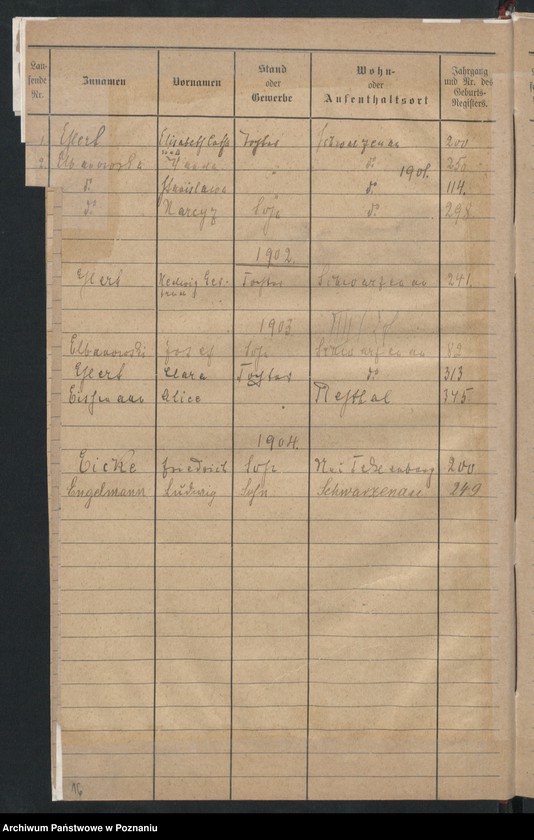 Lau-fende Nr. Zunamen Vornamen Stand oder Gewerbe Wohn- oder Aufenthaltsort Jahrgang und Nr. des Geburts-Registers.
1 Ehlert Elisabeth Tochter Schwarzenau 200
2 Elbanowska Wanda " d° 1901. 259
d° Stanislawa d° 114.
d° Narcyz Sohn d° 298
1902.
Ehlert Hedwig Ger-trud Tochter Schwarzenau 241.
1903.
Elbanowski Josef Sohn Schwarzenau 82
Ehlert Clara Tochter d° 313
Eichmann Alice " 345
1904.
Eicke Friedrich Sohn 200
Engelmann Ludwig Sohn Schwarzenau 249
16
Archiwum Państwowe w Poznaniu